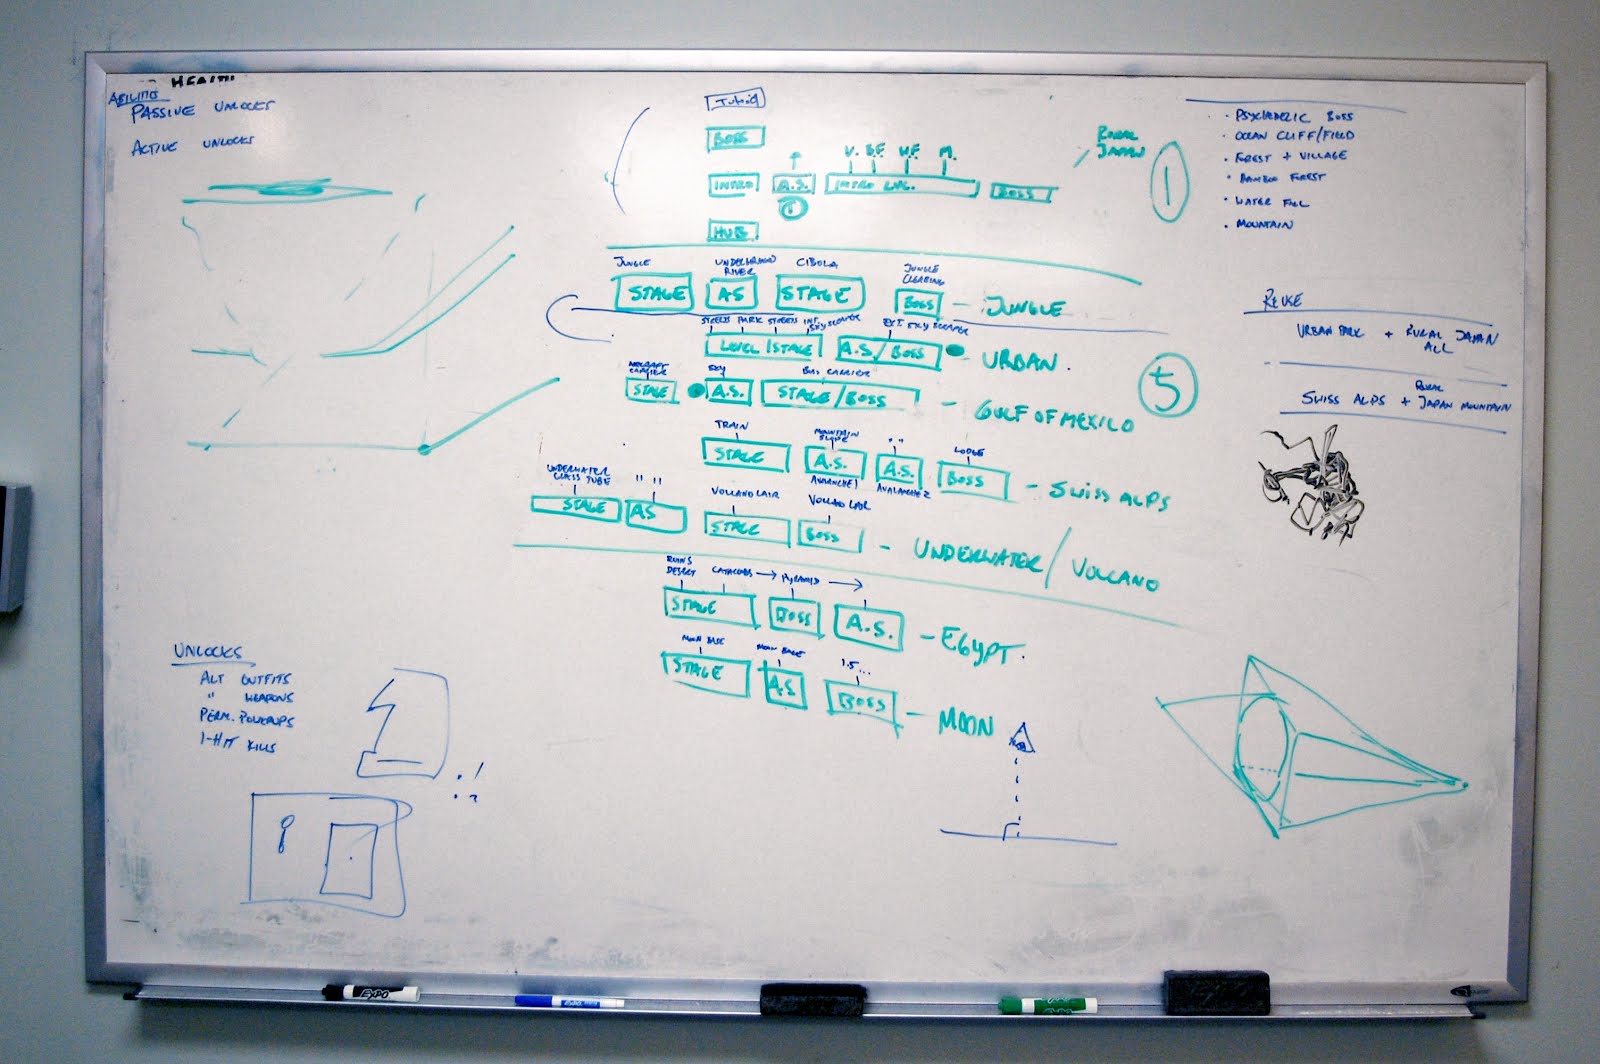 HEALTH
ABILITIES
PASSIVE UNLOCKS
ACTIVE UNLOCKS
Tutorial
BOSS
V. B.F. W.F. M.
INTRO A.S. INTRO LVL. BOSS
HUB
RURAL
JAPAN
1
• PSYCHEDELIC BOSS
• OCEAN CLIFF/FIELD
• FOREST + VILLAGE
• BAMBOO FOREST
• WATER FALL
• MOUNTAIN
JUNGLE UNDERGROUND RIVER CIBOLA JUNGLE CLEARING
STAGE AS STAGE BOSS – JUNGLE
STREETS PARK STREETS INT. SKYSCRAPER EXT. SKYSCRAPER
LEVEL 1 STAGE A.S./BOSS – URBAN.
AIRCRAFT CARRIER SKY CARRIER
STAGE A.S. STAGE/BOSS – GULF OF MEXICO
5
TRAIN MOUNTAIN SLOPE " " LODGE
STAGE A.S. A.S. BOSS – SWISS ALPS
AVALANCHE 1 AVALANCHE 2
UNDERWATER GLASS TUBE " " VOLCANO LAIR VOLCANO LAIR
STAGE AS STAGE BOSS – UNDERWATER/VOLCANO
RUINS
DESERT CATACOMBS → PYRAMID →
STAGE BOSS A.S. – EGYPT.
MOON BASE MOON BASE 1.5...
STAGE A.S. BOSS – MOON
REUSE
URBAN PARK + RURAL JAPAN
ALL
SWISS ALPS + RURAL JAPAN MOUNTAIN
UNLOCKS
ALT OUTFITS
" WEAPONS
PERM. POWERUPS
1-HIT KILLS
EXPO
EXPO